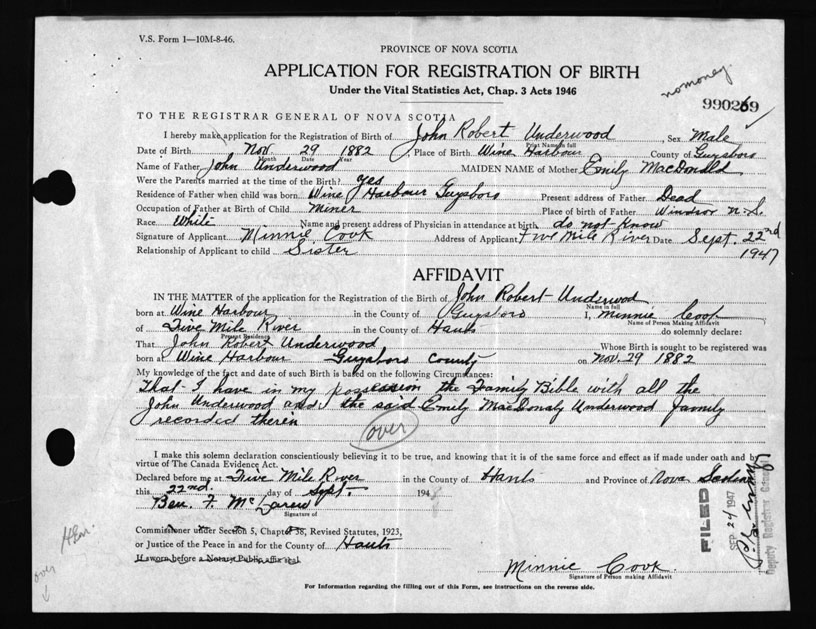 V.S. Form 1—10M-8-46.
PROVINCE OF NOVA SCOTIA
APPLICATION FOR REGISTRATION OF BIRTH
Under the Vital Statistics Act, Chap. 3 Acts 1946
no money
990269
TO THE REGISTRAR GENERAL OF NOVA SCOTIA
I hereby make application for the Registration of Birth of John Robert Underwood Sex Male
Print Name in full
Date of Birth Nov. 29 1882, Place of Birth Wine Harbour County of Guysboro
Month Date Year
Name of Father John Underwood MAIDEN NAME of Mother Emily MacDonald
Were the Parents married at the time of the Birth? yes
Residence of Father when child was born Wine Harbour Guysboro Present address of Father Dead
Occupation of Father at Birth of Child Miner Place of birth of Father Windsor N.S.
Race White Name and present address of Physician in attendance at birth do not know
Signature of Applicant Minnie Cook Address of Applicant Five Mile River Date Sept. 22nd
Relationship of Applicant to child Sister 1947
AFFIDAVIT
IN THE MATTER of the application for the Registration of Birth of John Robert Underwood
Name in full
born at Wine Harbour in the County of Guysboro I, Minnie Cook
Name of Person Making Affidavit
of Five Mile River in the County of Hants do solemnly declare:
Present Residence
That John Robert Underwood Whose Birth is sought to be registered was
born at Wine Harbour Guysboro County on Nov. 29 1882
My knowledge of the fact and date of such Birth is based on the following Circumstances:
That I have in my possession the Family Bible with all the
John Underwood and the said Emily MacDonaly Underwood family
recorded therein
over
I make this solemn declaration conscientiously believing it to be true, and knowing that it is of the same force and effect as if made under oath and by
virtue of The Canada Evidence Act.
Declared before me at Five Mile River in the County of Hants and Province of Nova Scotia
this 22nd. day of Sept. 194
Ben. F.
Signature of
Commissioner under Section 5, Chapter 38, Revised Statutes, 1923,
or Justice of the Peace in and for the County of Hants
If sworn before a Notary Public affix seal
Minnie Cook.
Signature of Person making Affidavit
For Information regarding the filling out of this Form, see instructions on the reverse side.
FILED
SEP 24 1947
Deputy Registrar General
over